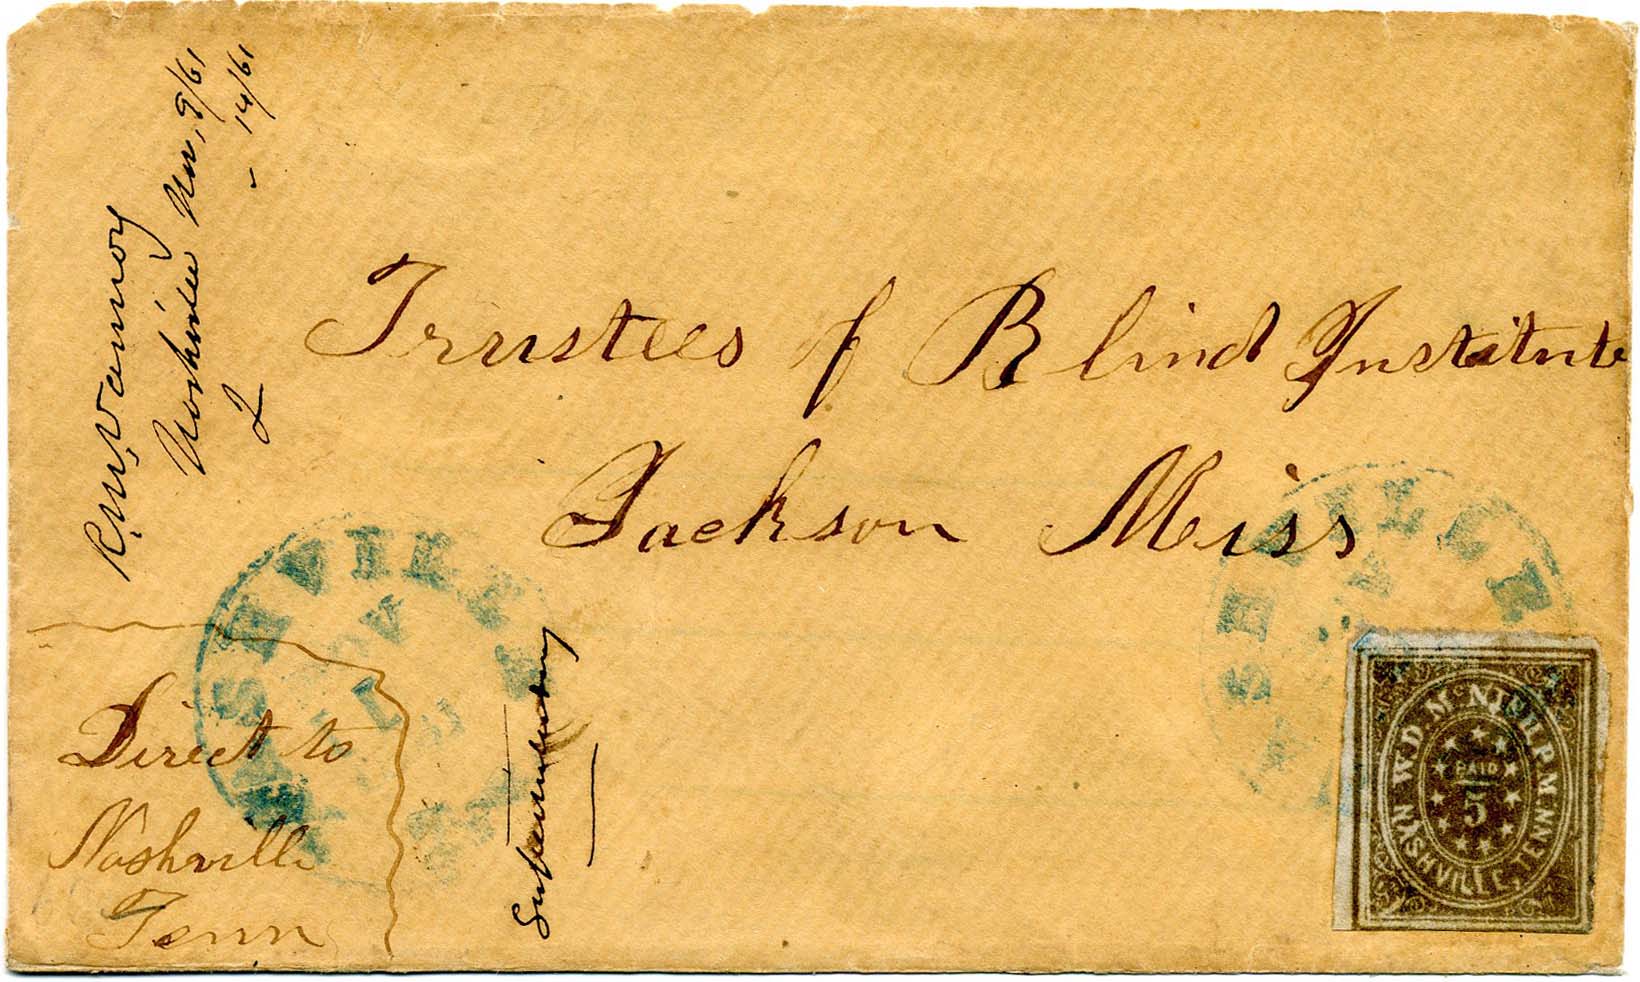 Nashville Nov, 9/61
14/61
Trustees of Blind Institute
Jackson Miss
Direct to
Nashville
Tenn
NASHVILLE
NOV
NASHVILLE
NOV
W.D. McNISH P.M. NASHVILLE, TENN
PAID
5